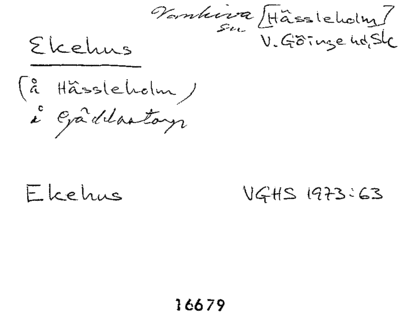 Vankiva [Hässleholm]
sn V. Göinge hd, Sk
Ekehus
(å Hässleholm)
å Gäddastorp
Ekehus VGHS 1973:63
16679